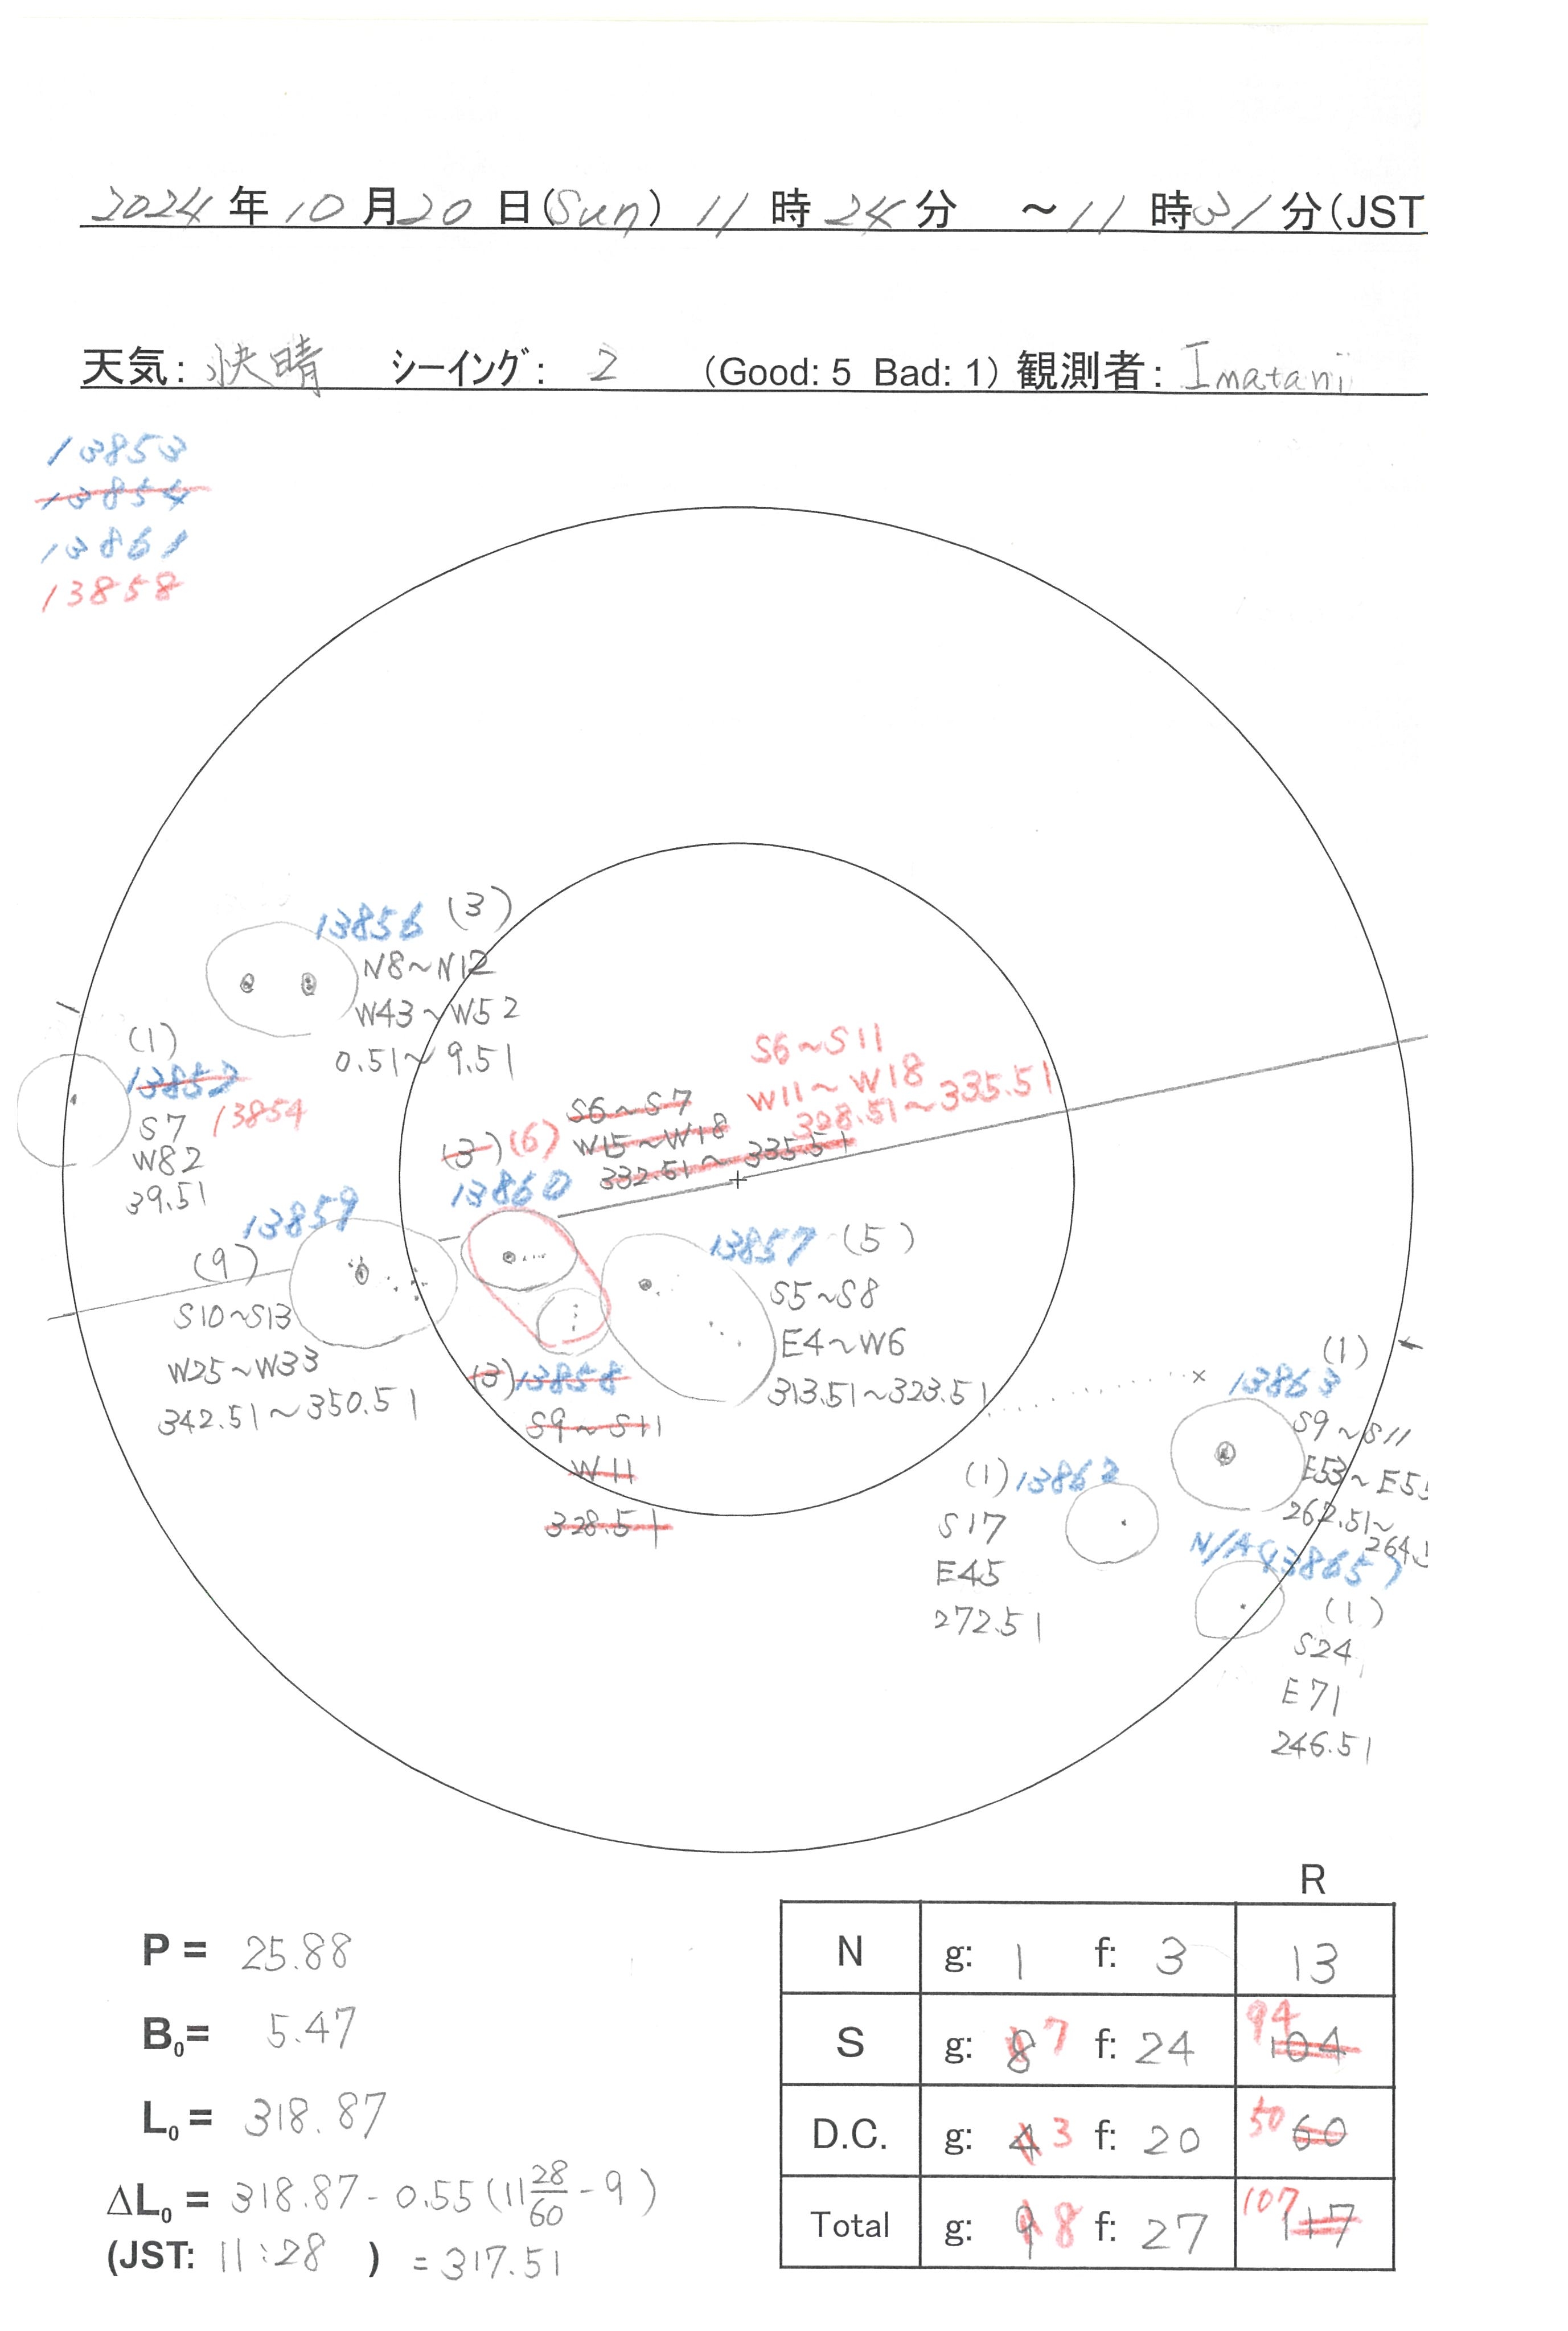 2024 年 10 月 20 日(Sun) 11 時 24 分 ～ 11 時 31 分(JST
天気: 快晴 シーイング: 2 (Good: 5 Bad: 1) 観測者: Imatani
13853
13854
13861
13858
13856 (3)
N8~N12
W43~W52
0.51~9.51
(1)
13854
S7
W82
39.51
S6~S11
W11~W18
328.51~335.51
S6~S7
W15~W18
332.51~335.51
(3) (6)
13860
13859
(9)
S10~S13
W25~W33
342.51~350.51
13857 (5)
S5~S8
E4~W6
313.51~323.51
(3) 13858
S9~S11
W11
328.51
(1)
13863
S9~S11
E53~E55
262.51~
(1) 13862
S17
E45
272.51
N/A (13865)
(1)
S24
E71
246.51
P = 25.88
B0= 5.47
L0 = 318.87
ΔL0 = 318.87 - 0.55 (11 28/60 - 9)
(JST: 11:28 ) = 317.51
R
N g: 1 f: 3 13
S g: 8 7 f: 24 94 104
D.C. g: 4 3 f: 20 50 60
Total g: 9 8 f: 27 107 117